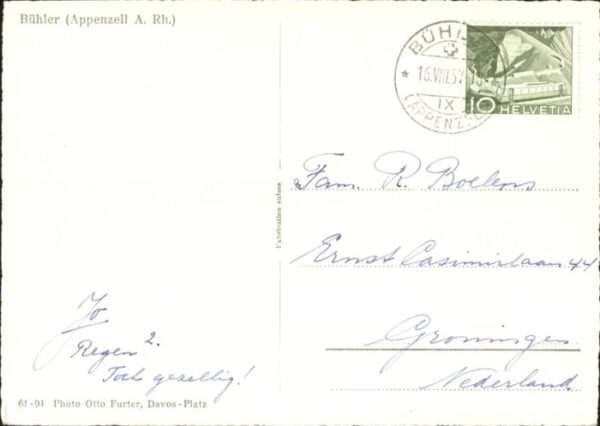 Bühler (Appenzell A. Rh.)
BÜH
16.VIII.57
IX
(APPENZ
10 HELVETIA
Fam. R. Boelens
Ernst Casimirlaan 44
Groningen
Nederland
Fabrication suisse
Jo
Regen 2.
Toch gezellig!
61-91 Photo Otto Furter, Davos-Platz